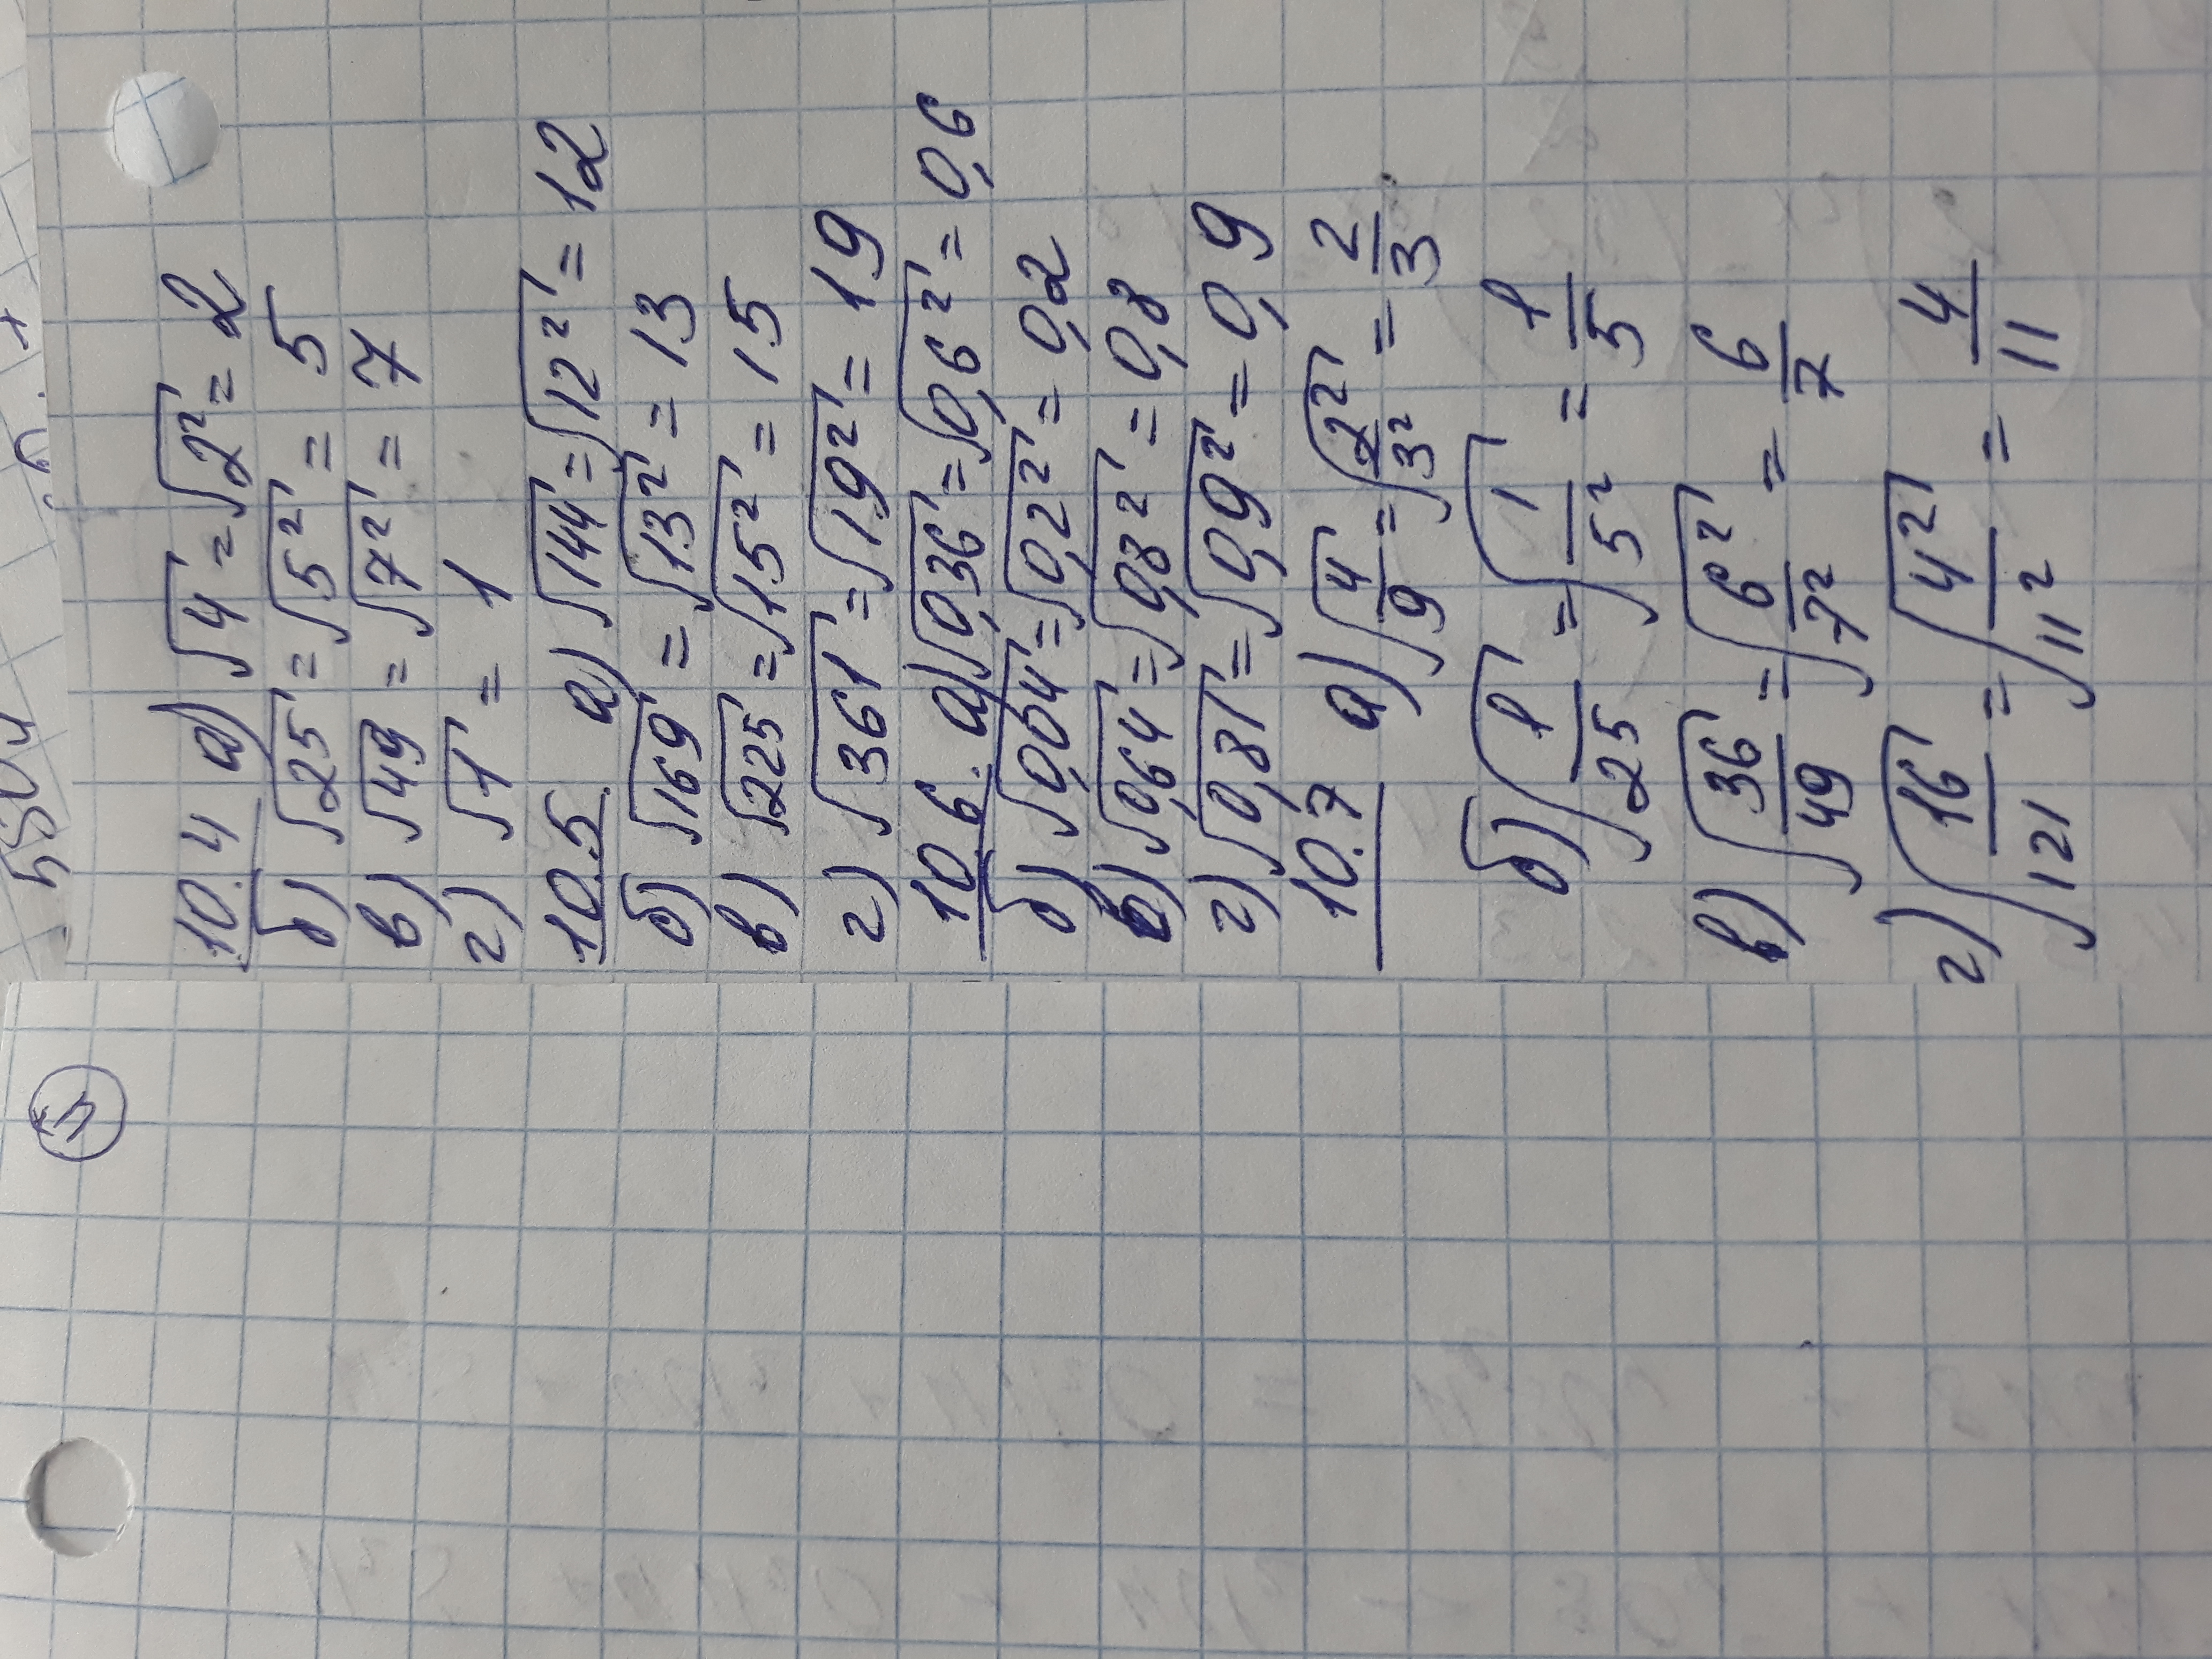 10.4 а) √4 = √2² = 2
б) √25 = √5² = 5
в) √49 = √7² = 7
г) √1 = 1
10.5 а) √144 = √12² = 12
б) √169 = √13² = 13
в) √225 = √15² = 15
г) √361 = √19² = 19
10.6. а) √0,36 = √0,6² = 0,6
б) √0,04 = √0,2² = 0,2
в) √0,64 = √0,8² = 0,8
г) √0,81 = √0,9² = 0,9
10.7 а) √4/9 = √2²/3² = 2/3
б) √1/25 = √1/5² = 1/5
в) √36/49 = √6²/7² = 6/7
г) √16/121 = √4²/11² = 4/11